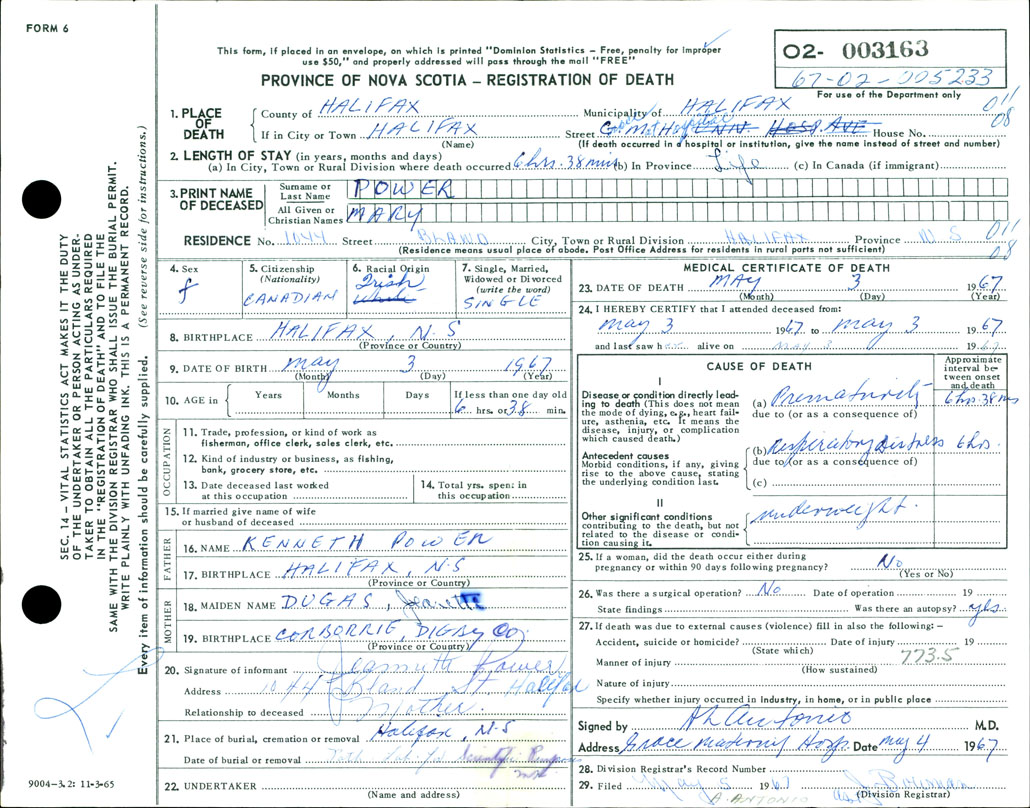 FORM 6
This form, if placed in an envelope, on which is printed "Dominion Statistics – Free, penalty for improper
use $50," and properly addressed will pass through the mail "FREE"
PROVINCE OF NOVA SCOTIA – REGISTRATION OF DEATH
02- 003163
67-02-005233
For use of the Department only
011
08
1. PLACE OF DEATH
County of HALIFAX Municipality of HALIFAX
If in City or Town HALIFAX Street Mat Hospital HOSP. AVE House No.
(Name) (If death occurred in a hospital or institution, give the name instead of street and number)
2. LENGTH OF STAY (in years, months and days)
(a) In City, Town or Rural Division where death occurred 6 hrs. 38 min (b) In Province Life (c) In Canada (if immigrant)
3. PRINT NAME OF DECEASED
Surname or Last Name POWER
All Given or Christian Names MARY
RESIDENCE No. 1044 Street BLAND City, Town or Rural Division HALIFAX Province N S
011
08
(Residence means usual place of abode. Post Office Address for residents in rural parts not sufficient)
4. Sex f
5. Citizenship (Nationality) CANADIAN
6. Racial Origin Irish White
7. Single, Married, Widowed or Divorced (write the word) SINGLE
8. BIRTHPLACE HALIFAX, N.S
(Province or Country)
9. DATE OF BIRTH May 3 1967
(Month) (Day) (Year)
10. AGE in Years Months Days If less than one day old
6 hrs. or 38 min.
OCCUPATION
11. Trade, profession, or kind of work as
fisherman, office clerk, sales clerk, etc.
12. Kind of industry or business, as fishing,
bank, grocery store, etc.
13. Date deceased last worked
at this occupation
14. Total yrs. spent in
this occupation
15. If married give name of wife
or husband of deceased
FATHER
16. NAME KENNETH POWER
17. BIRTHPLACE HALIFAX, N.S
(Province or Country)
MOTHER
18. MAIDEN NAME DUGAS, Jeanette
19. BIRTHPLACE CORBORRIE, DIGBY Co,
(Province or Country)
20. Signature of informant Jeannette Power
Address 1044 Bland St Halifax
Relationship to deceased Mother.
21. Place of burial, cremation or removal Halifax, N.S
Date of burial or removal
22. UNDERTAKER
(Name and address)
MEDICAL CERTIFICATE OF DEATH
23. DATE OF DEATH MAY 3 1967
(Month) (Day) (Year)
24. I HEREBY CERTIFY that I attended deceased from:
May 3 1967 to May 3 1967
and last saw her alive on May 3 1967
CAUSE OF DEATH
Approximate interval between onset and death
I
Disease or condition directly leading to death (This does not mean
the mode of dying, e.g., heart failure, asthenia, etc. It means the
disease, injury, or complication
which caused death.)
(a) Prematurity 6 hrs. 38 mins
due to (or as a consequence of)
Antecedent causes
Morbid conditions, if any, giving
rise to the above cause, stating
the underlying condition last.
(b) respiratory distress 6 hrs
due to (or as a consequence of)
(c)
II
Other significant conditions
contributing to the death, but not
related to the disease or condition causing it.
underweight.
25. If a woman, did the death occur either during
pregnancy or within 90 days following pregnancy? No
(Yes or No)
26. Was there a surgical operation? No Date of operation 19
State findings Was there an autopsy? yes
27. If death was due to external causes (violence) fill in also the following: –
Accident, suicide or homicide? Date of injury 19
(State which)
773.5
Manner of injury
(How sustained)
Nature of injury
Specify whether injury occurred in industry, in home, or in public place
Signed by A L Antonio M.D.
Address Grace Maternity Hosp. Date May 4 1967
28. Division Registrar's Record Number
29. Filed May 5 1967
(Division Registrar)
A. ANTONIO
SEC. 14 – VITAL STATISTICS ACT MAKES IT THE DUTY
OF THE UNDERTAKER OR PERSON ACTING AS UNDERTAKER TO OBTAIN ALL THE PARTICULARS REQUIRED
IN THE "REGISTRATION OF DEATH" AND TO FILE THE
SAME WITH THE DIVISION REGISTRAR WHO SHALL ISSUE THE BURIAL PERMIT.
WRITE PLAINLY WITH UNFADING INK. THIS IS A PERMANENT RECORD.
Every item of information should be carefully supplied. (See reverse side for instructions.)
9004-3.2: 11-3-65